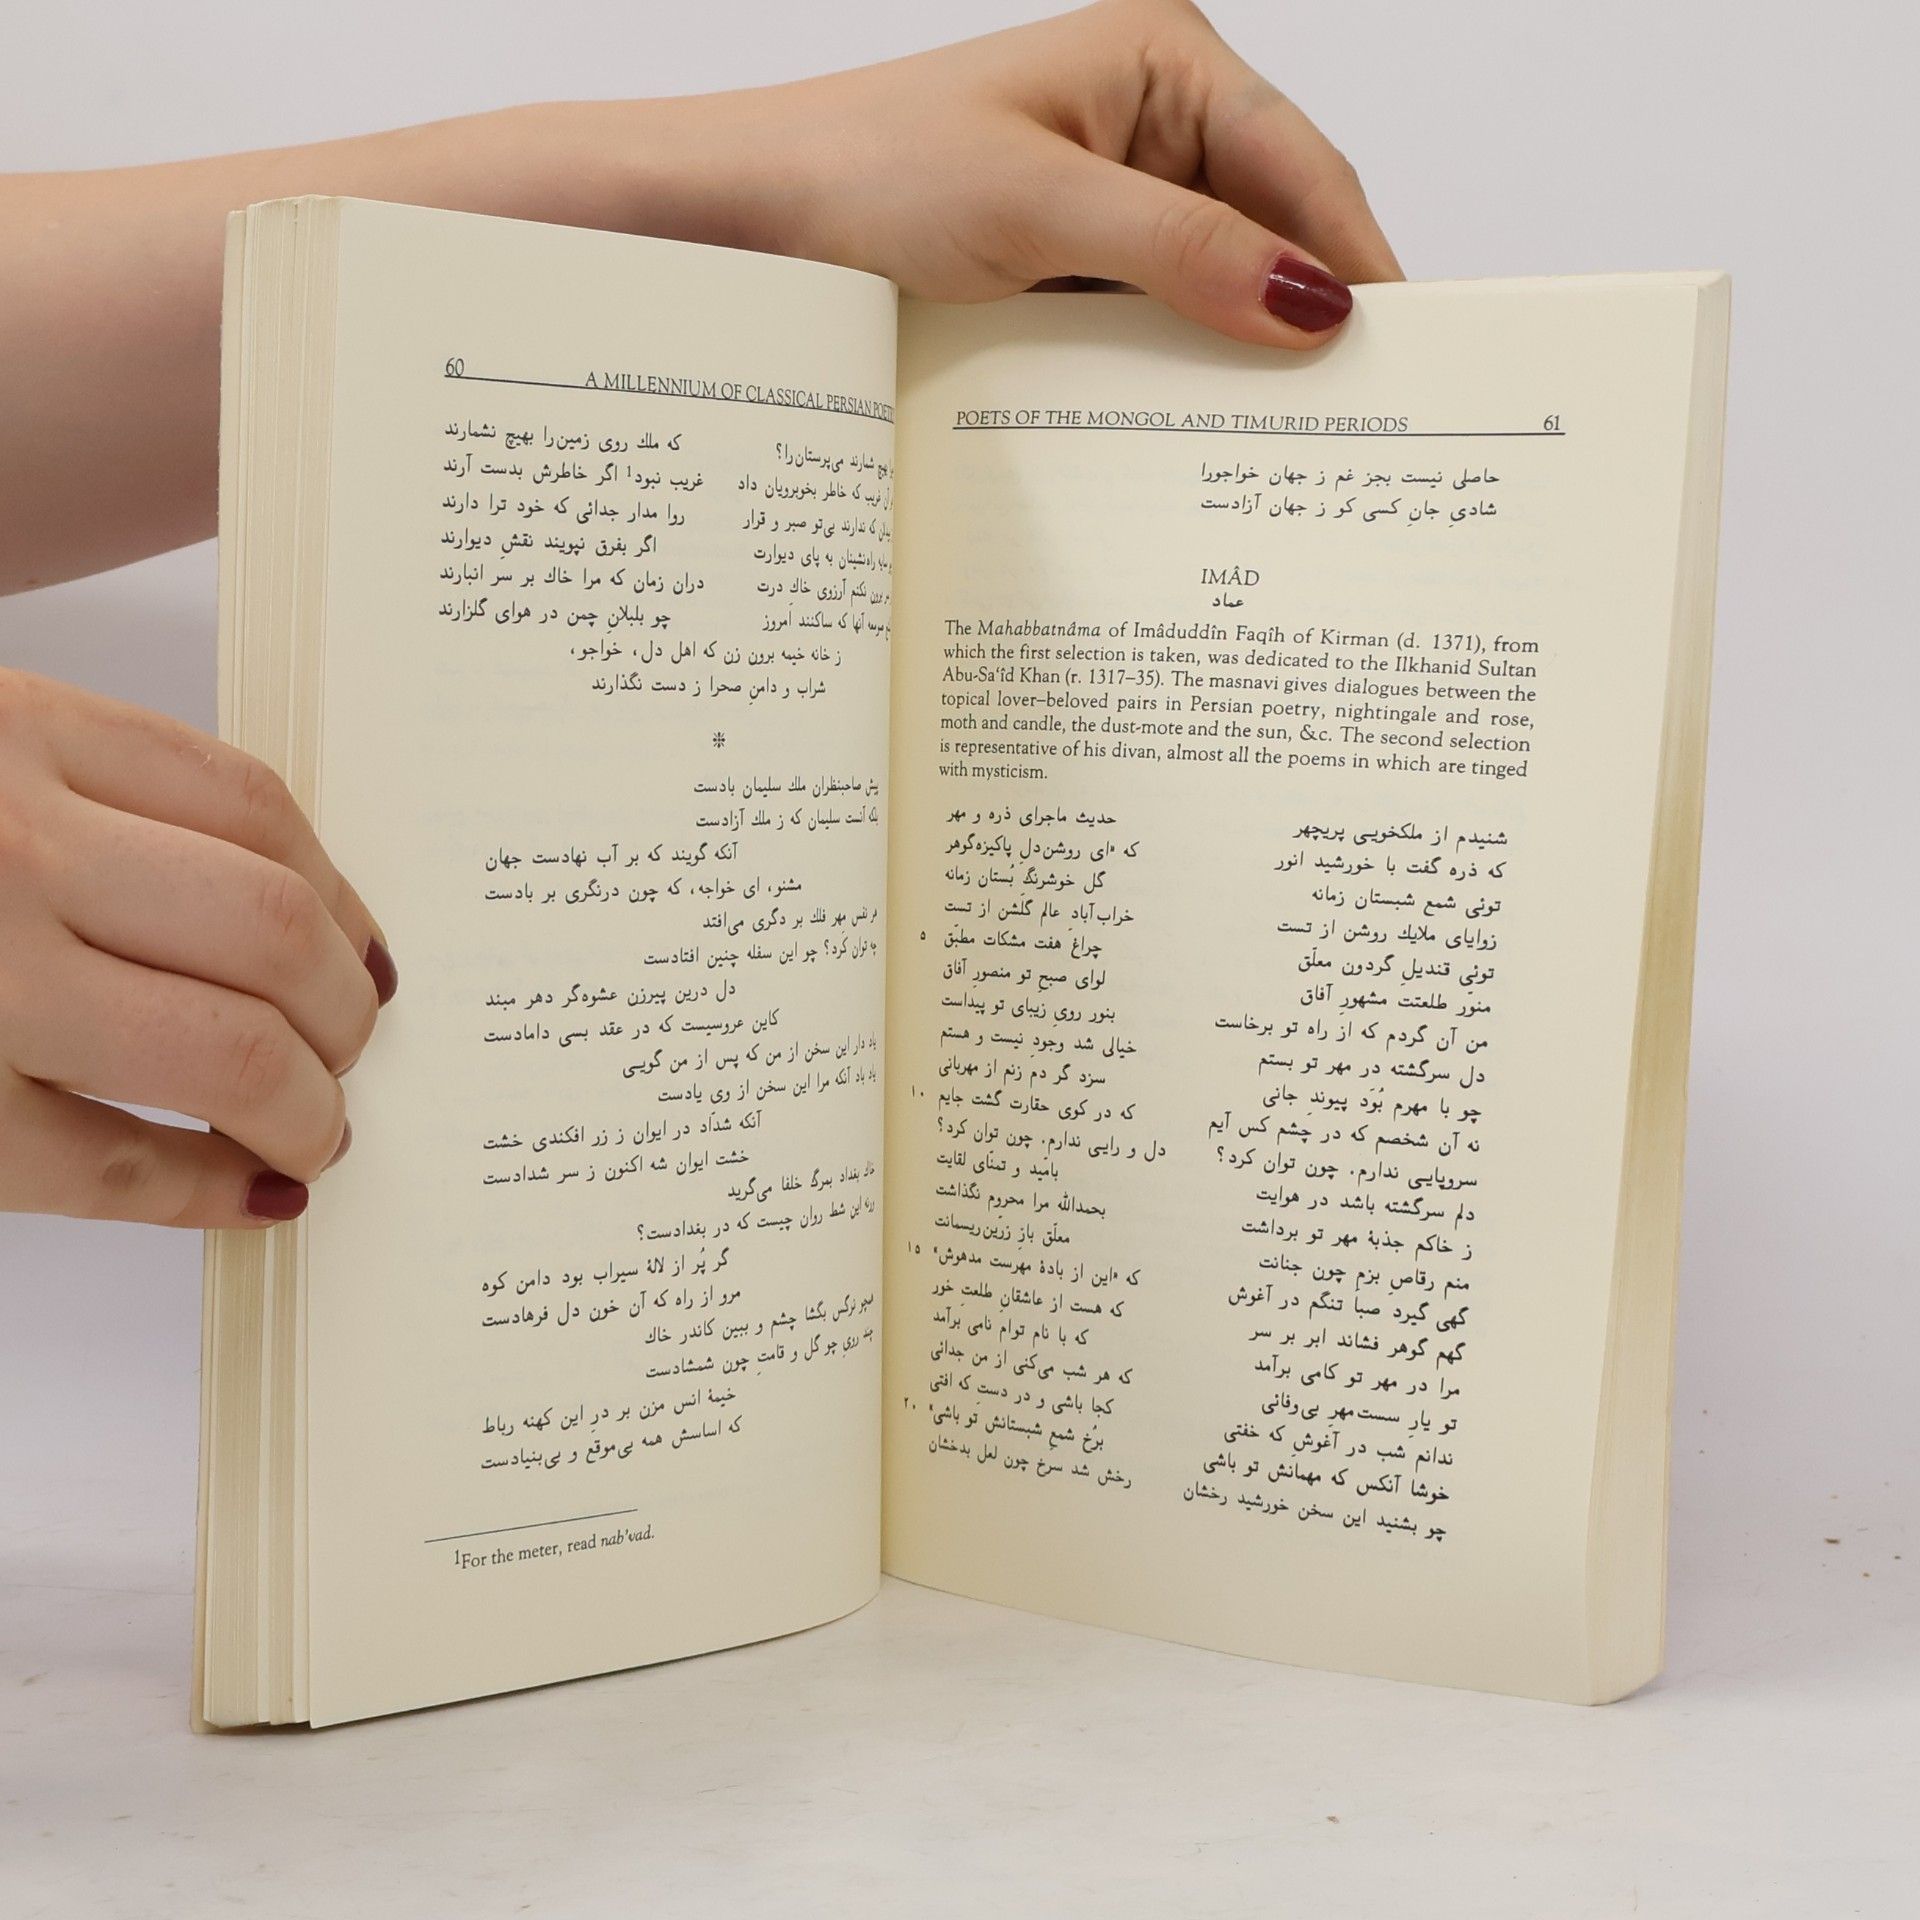 60 A MILLENNIUM OF CLASSICAL PERSIAN
بهیچ شمارند می‌پرستان‌را؟ که ملك روی زمین‌را بهیچ نشمارند
آن غریب که خاطر بخوبرویان داد غریب نبود1 اگر خاطرش بدست آرند
که ندارند بی‌تو صبر و قرار روا مدار جدائی که خود ترا دارند
راه‌نشینان به پای دیوارت اگر بفرق نپویند نقشِ دیوارند
برون نکنم آرزوی خاكِ درت دران زمان که مرا خاك بر سر انبارند
صومعه آنها که ساکنند امروز چو بلبلانِ چمن در هوای گلزارند
ز خانه خیمه برون زن که اهل دل، خواجو،
شراب و دامنِ صحرا ز دست نگذارند
❊
پیش صاحبنظران ملك سلیمان بادست
بلکه آنست سلیمان که ز ملك آزادست
آنکه گویند که بر آب نهادست جهان
مشنو، ای خواجه، که چون درنگری بر بادست
هر نفس مهر فلك بر دگری می‌افتد
چه توان کرد؟ چو این سفله چنین افتادست
دل درین پیرزن عشوه‌گر دهر مبند
کاین عروسیست که در عقد بسی دامادست
یاد دار این سخن از من که پس از من گویی
یاد باد آنکه مرا این سخن از وی یادست
آنکه شدّاد در ایوان ز زر افکندی خشت
خشت ایوان شه اکنون ز سر شدادست
خاك بغداد بمرگ خلفا می‌گرید
ورنه این شط روان چیست که در بغدادست؟
گر پُر از لالهٔ سیراب بود دامن کوه
مرو از راه که آن خون دل فرهادست
همچو نرگس بگشا چشم و ببین کاندر خاك
چند رویِ چو گل و قامتِ چون شمشادست
خیمهٔ انس مزن بر درِ این کهنه رباط
که اساسش همه بی‌موقع و بی‌بنیادست
1For the meter, read nab'vad.
POETS OF THE MONGOL AND TIMURID PERIODS 61
حاصلی نیست بجز غم ز جهان خواجورا
شادیِ جانِ کسی کو ز جهان آزادست
IMÂD
عماد
The Mahabbatnâma of Imâduddîn Faqîh of Kirman (d. 1371), from
which the first selection is taken, was dedicated to the Ilkhanid Sultan
Abu-Sa‘îd Khan (r. 1317–35). The masnavi gives dialogues between the
topical lover–beloved pairs in Persian poetry, nightingale and rose,
moth and candle, the dust-mote and the sun, &c. The second selection
is representative of his divan, almost all the poems in which are tinged
with mysticism.
شنیدم از ملکخویی پریچهر حدیث ماجرای ذره و مهر
که ذره گفت با خورشید انور که «ای روشن‌دلِ پاکیزه‌گوهر
توئی شمع شبستان زمانه گل خوشرنگِ بُستان زمانه
زوایای ملایك روشن از تست خراب‌آبادِ عالم گلشن از تست
توئی قندیلِ گردون معلّق چراغِ هفت مشکات مطبّق ۵
منوّر طلعتت مشهورِ آفاق لوای صبحِ تو منصورِ آفاق
من آن گردم که از راه تو برخاست بنور رویِ زیبای تو پیداست
دل سرگشته در مهر تو بستم خیالی شد وجودِ نیست و هستم
چو با مهرم بُوَد پیوندِ جانی سزد گر دم زنم از مهربانی
نه آن شخصم که در چشم کس آیم که در کوی حقارت گشت جایم ۱۰
سروپایی ندارم. چون توان کرد؟ دل و رایی ندارم. چون توان کرد؟
دلم سرگشته باشد در هوایت بامّید و تمنّای لقایت
ز خاکم جذبهٔ مهر تو برداشت بحمدالله مرا محروم نگذاشت
منم رقاصِ بزمِ چون جنانت معلّق بازِ زرّین‌ریسمانت
گهی گیرد صبا تنگم در آغوش که «این از بادهٔ مهرست مدهوش» ۱۵
گهم گوهر فشاند ابر بر سر که هست از عاشقانِ طلعتِ خور
مرا در مهر تو کامی برآمد که با نام توام نامی برآمد
تو یارِ سست‌مهرِ بی‌وفائی که هر شب می‌کنی از من جدائی
ندانم شب در آغوشِ که خفتی کجا باشی و در دستِ که افتی
خوشا آنکس که مهمانش تو باشی برُخ شمعِ شبستانش تو باشی» ۲۰
چو بشنید این سخن خورشید رخشان رخش شد سرخ چون لعل بدخشان